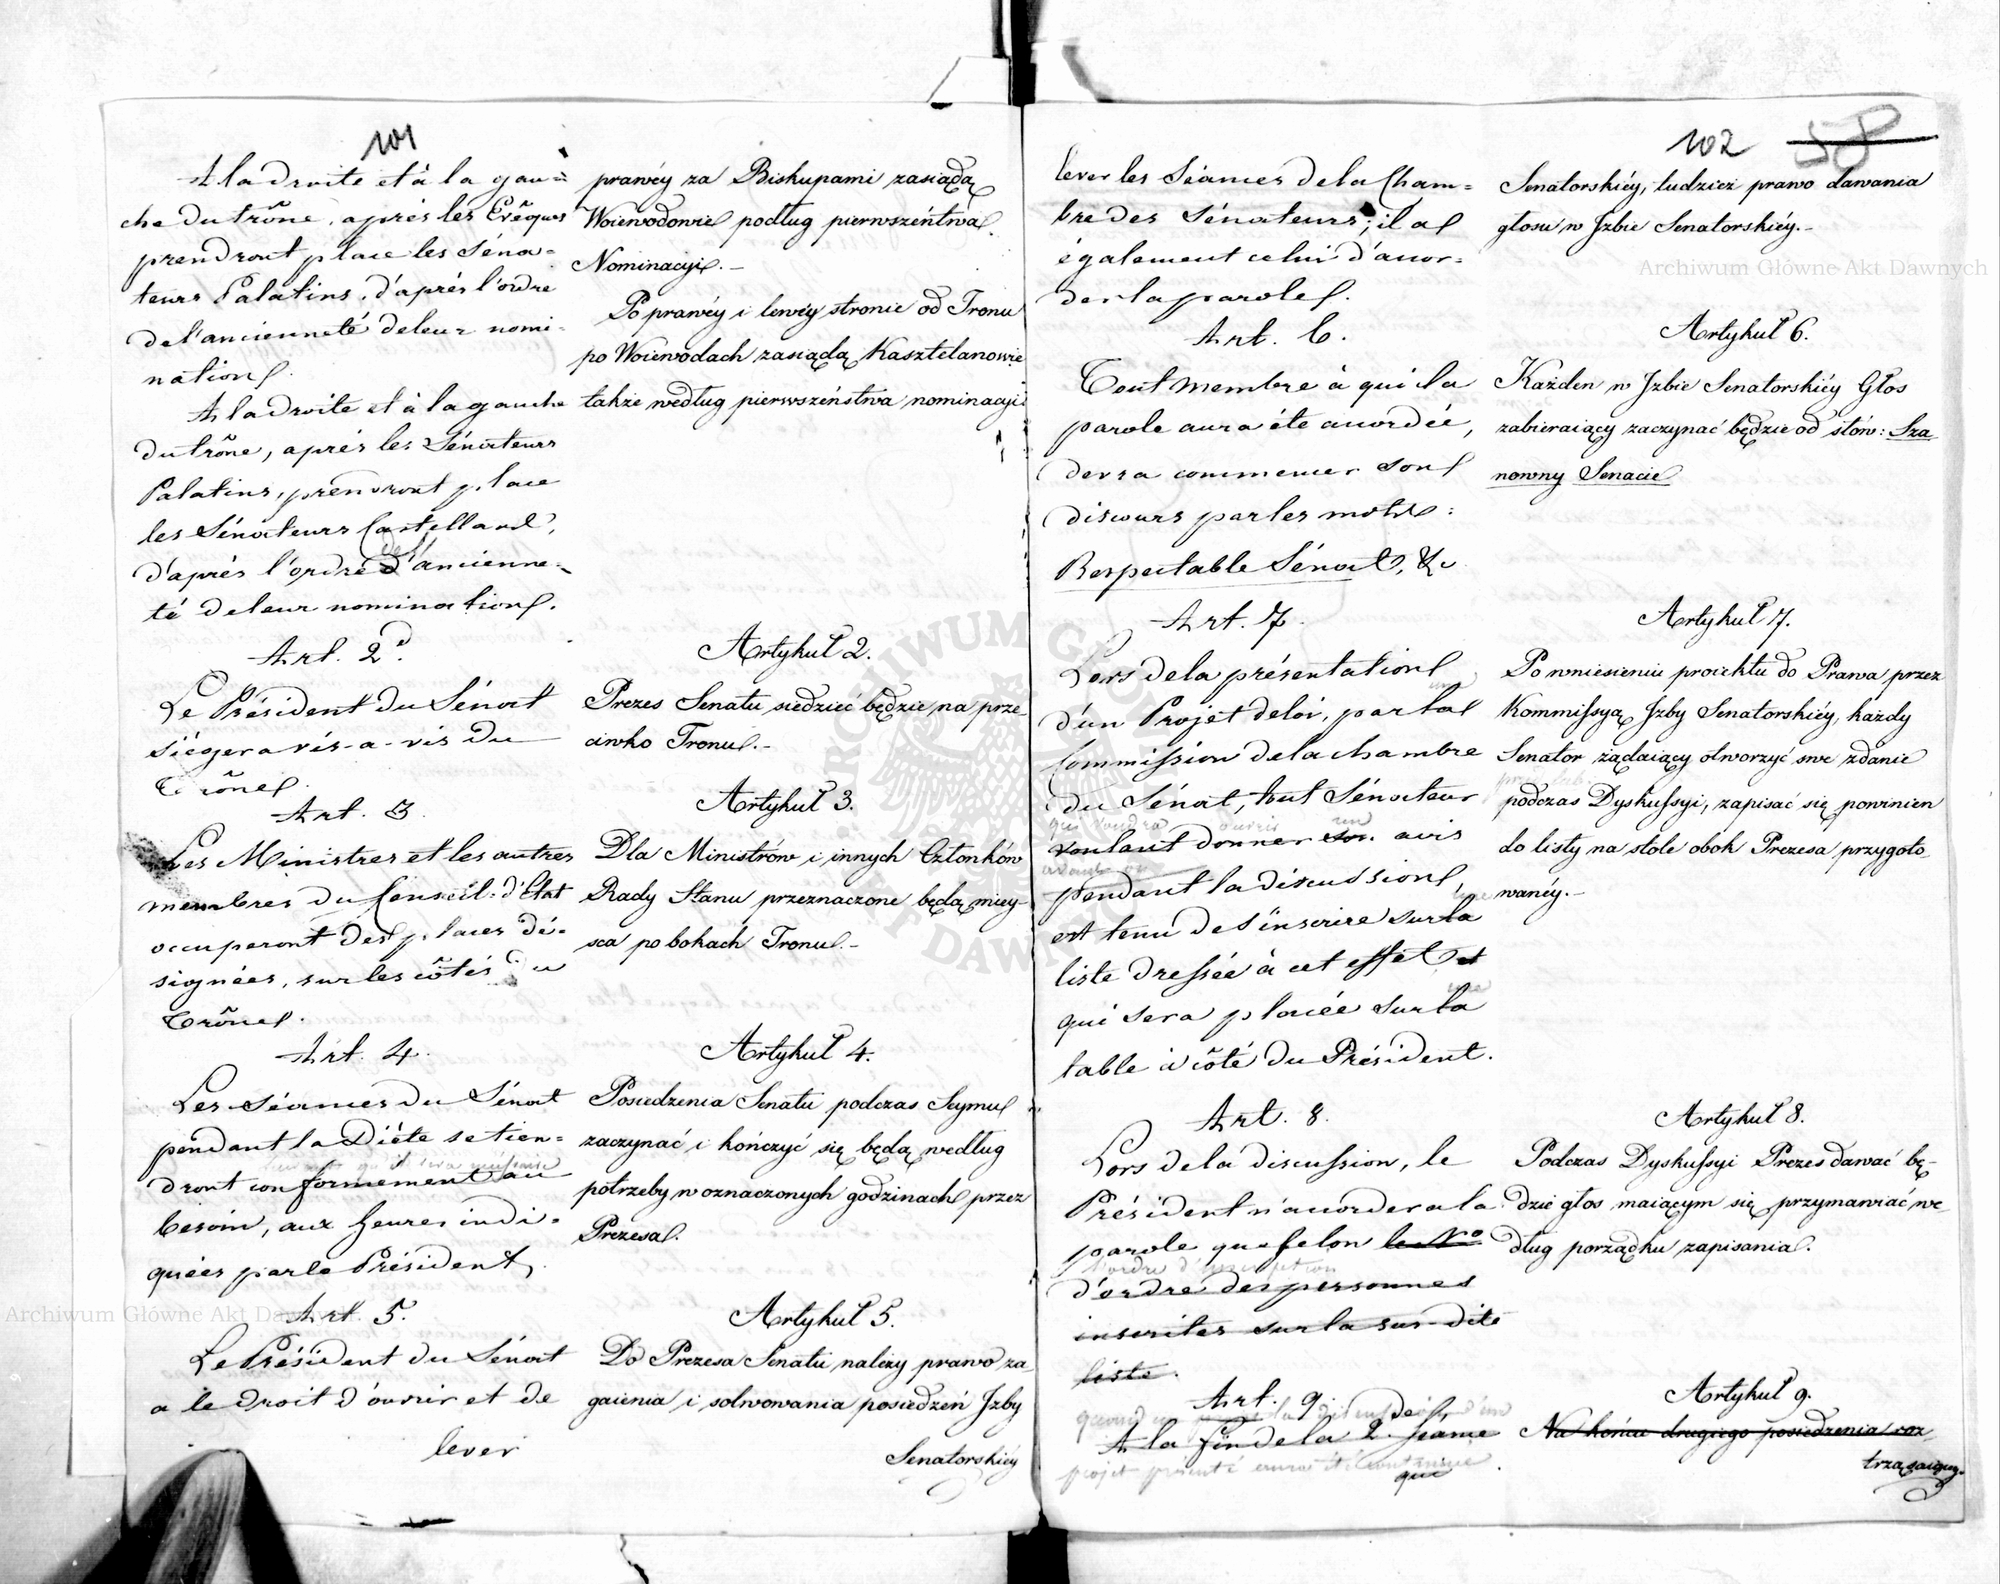 101
A la droite et à la gau=
che du trône, après les Evêques
prendront place les Séna=
teurs Palatins, d'après l'ordre
de l'ancienneté de leur nomi=
nation.
A la droite et à la gauche
du trône, après les Sénateurs
Palatins, prendront place
les Sénateurs Castellans,
d'après l'ordre d'ancienne=
té de leur nomination.
Art. 2d.
Le Président du Sénat
siégera vis-a-vis du
Trône.
Art. 3.
Les Ministres et les autres
membres du Conseil d'Etat
occuperont des places dé=
signées, sur les côtés du
Trône.
Art. 4.
Les séances du Sénat
pendant la Diète se tien=
dront conformement au
besoin, aux heures indi=
quées par le Président.
Art. 5.
Le Président du Sénat
a le droit d'ouvrir et de
lever
prawéy za Biskupami zasiądą
Woiewodowie podług pierwszeństwa
Nominacyi.-
Po prawéy i lewéy stronie od Tronu
po Woiewodach zasiądą Kasztelanowie
także według pierwszeństwa nominacyi
Artykuł 2.
Prezes Senatu siedzieć będzie na prze-
ciwko Tronu.-
Artykuł 3.
Dla Ministrów i innych Członków
Rady Stanu przeznaczone będą miey-
sca po bokach Tronu.-
Artykuł 4.
Posiedzenia Senatu podczas Seymu
zaczynać i kończyć się będą według
potrzeby w oznaczonych godzinach przez
Prezesa.
Artykuł 5.
Do Prezesa Senatu należy prawo za-
gaienia i solwowania posiedzeń Jzby
Senatorskiéy
102 58
lever les Séances de la Cham=
bre des Sénateurs; il a
également celui d'accor=
der la parole.
Art. 6.
Tout membre à qui la
parole aura été accordée,
devra commencer son
discours par les mots:
Respectable Sénat, &c
Art. 7.
Lors de la présentation
d'un Projet de loi, par la
Commission de la chambre
du Sénat, tout Sénateur
qui voudra ouvrir un
voulant donner son avis
pendant la discussion,
est tenu de s'inscrire sur la
liste dressée à cet effet et
qui sera placée sur la
table à côté du Président.
Art. 8.
Lors de la discussion, le
Président n'accordera la
parole que selon le No
l'ordre d'inscription
d'ordre des personnes
inscrites sur la sus-dite
liste.
Art. 9.
A la fin de la 2de séance
que
Senatorskiéy, tudzież prawo dawania
głosu w Jzbie Senatorskiéy.-
Artykuł 6.
Każden w Jzbie Senatorskiéy Głos
zabieraiący zaczynać będzie od słów: Sza
nowny Senacie
Artykuł 7.
Po wniesieniu proiektu do Prawa przez
Kommissyą Jzby Senatorskiéy, każdy
Senator żądaiący otworzyć swe zdanie
podczas Dyskussyi, zapisać się powinien
do listy na stole obok Prezesa przygoto-
wanéy.-
Artykuł 8.
Podczas Dyskussyi Prezes dawać bę-
dzie głos maiącym się przymawiać we-
dług porządku zapisania.
Artykuł 9.
Na końcu drugiego posiedzenia roz-
trząsaiącego
Archiwum Główne Akt Dawnych
Archiwum Główne Akt Dawnych